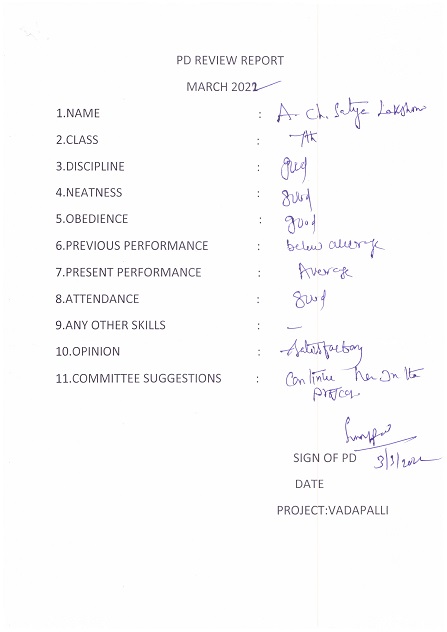 PD REVIEW REPORT
MARCH 2022
1.NAME : A. Ch. Satya Lakshmi
2.CLASS : 7th
3.DISCIPLINE : good
4.NEATNESS : good
5.OBEDIENCE : good
6.PREVIOUS PERFORMANCE : below average
7.PRESENT PERFORMANCE : Average
8.ATTENDANCE : good
9.ANY OTHER SKILLS : —
10.OPINION : Satisfactory
11.COMMITTEE SUGGESTIONS : Continue her in the
SIGN OF PD 3/3/2022
DATE
PROJECT:VADAPALLI